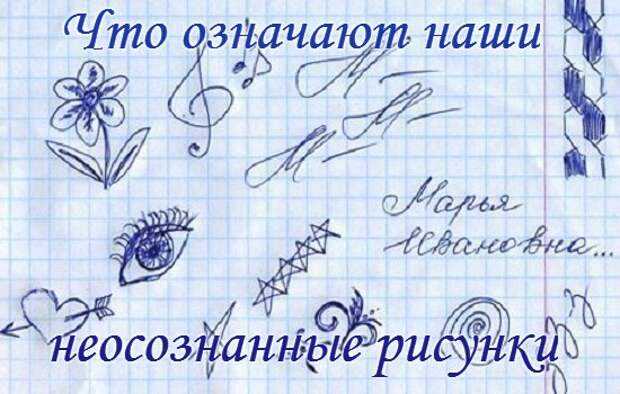 Что означают наши
М –
М –
М –
Марья
Ивановна...
неосознанные рисунки